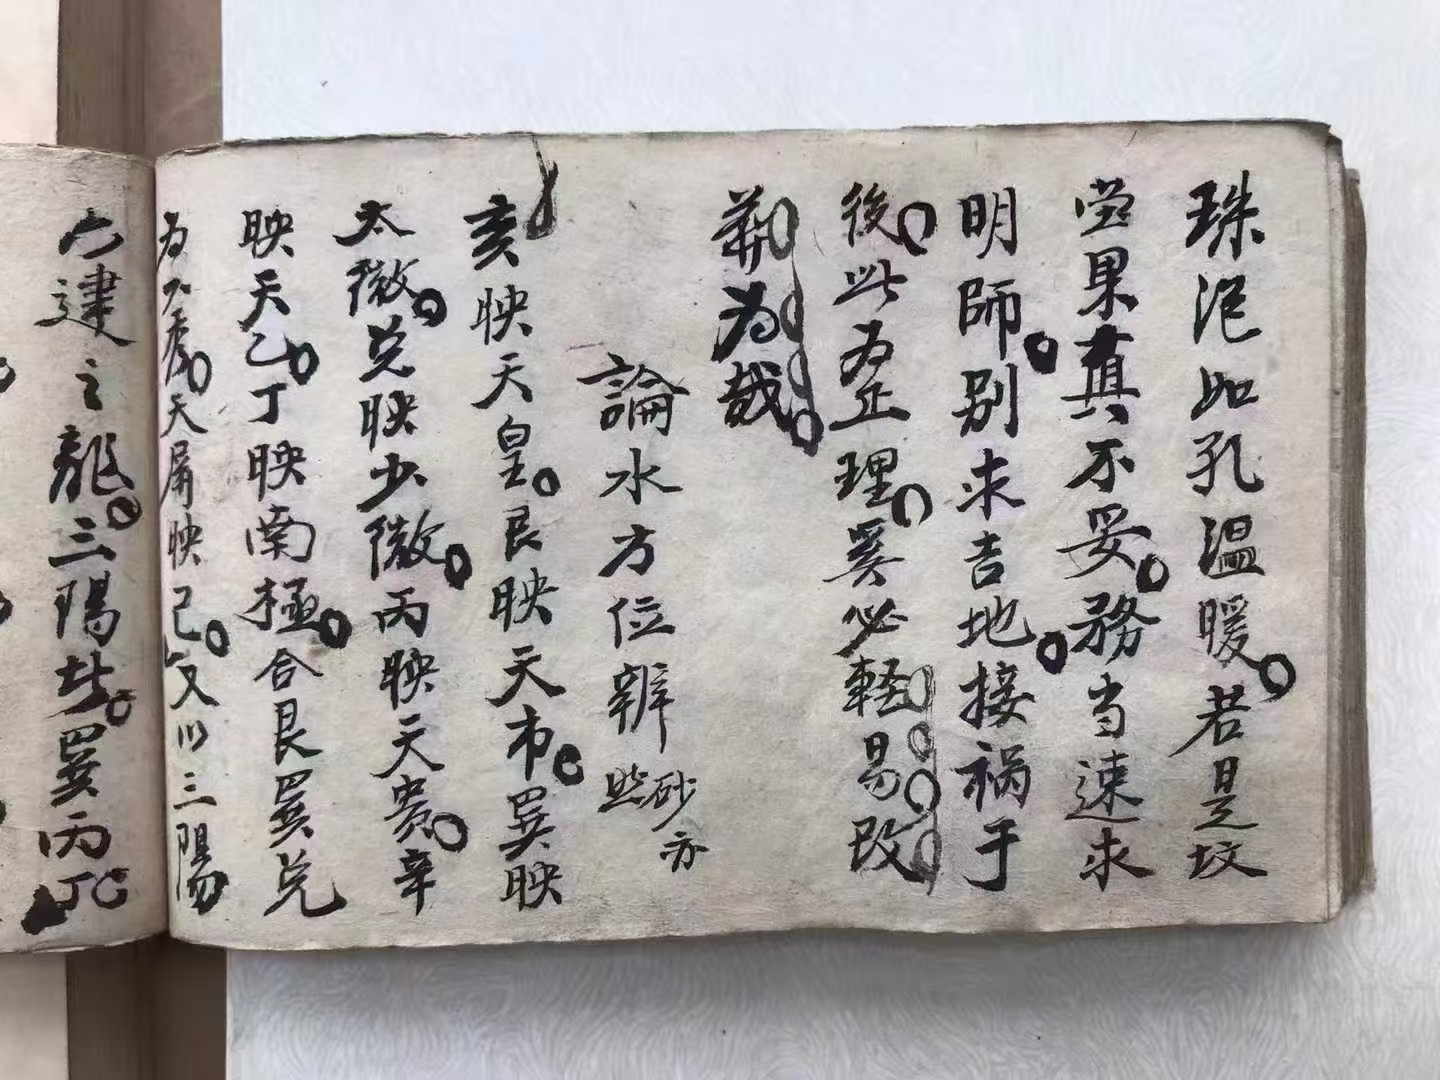 珠泡如孔温暖。若是坟
茔果真不妥。務当速求
明師。别求吉地。接祸于
後。此为正理。奚必軽易改
葬为哉。
論水方位辨
砂亦
照
亥映天皇。艮映天市。巽映
太微。兑映少微。丙映天貴。辛
映天乙。丁映南極。合艮巽兑
为六秀。天屏映己。又以三陽
六建之龍。三陽者。巽丙丁。